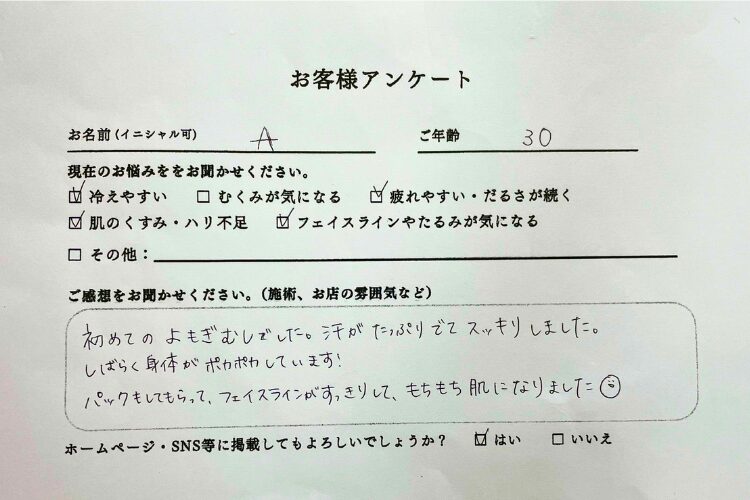 お客様アンケート
お名前(イニシャル可) A ご年齢 30
現在のお悩みををお聞かせください。
☑ 冷えやすい ☐ むくみが気になる ☑ 疲れやすい・だるさが続く
☑ 肌のくすみ・ハリ不足 ☑ フェイスラインやたるみが気になる
☐ その他：
ご感想をお聞かせください。(施術、お店の雰囲気など)
初めての よもぎむしでした。汗が たっぷりでて スッキリ しました。
しばらく身体が ポカポカしています!
パックもしてもらって、フェイスラインがすっきりして、もちもち 肌になりました☺
ホームページ・SNS等に掲載してもよろしいでしょうか? ☑ はい ☐ いいえ